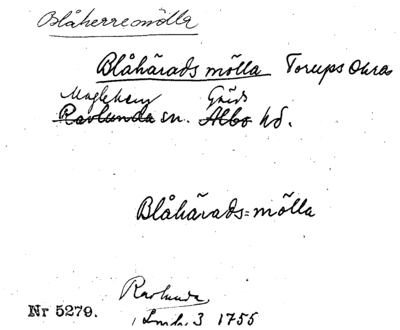 Blåherremölla
Blåhärads mölla Torups Okra
Maglehem Gärds
Ravlunda sn. Albo hd.
Blåhärads=mölla
Ravlunda
Nr 5279. 3 1755